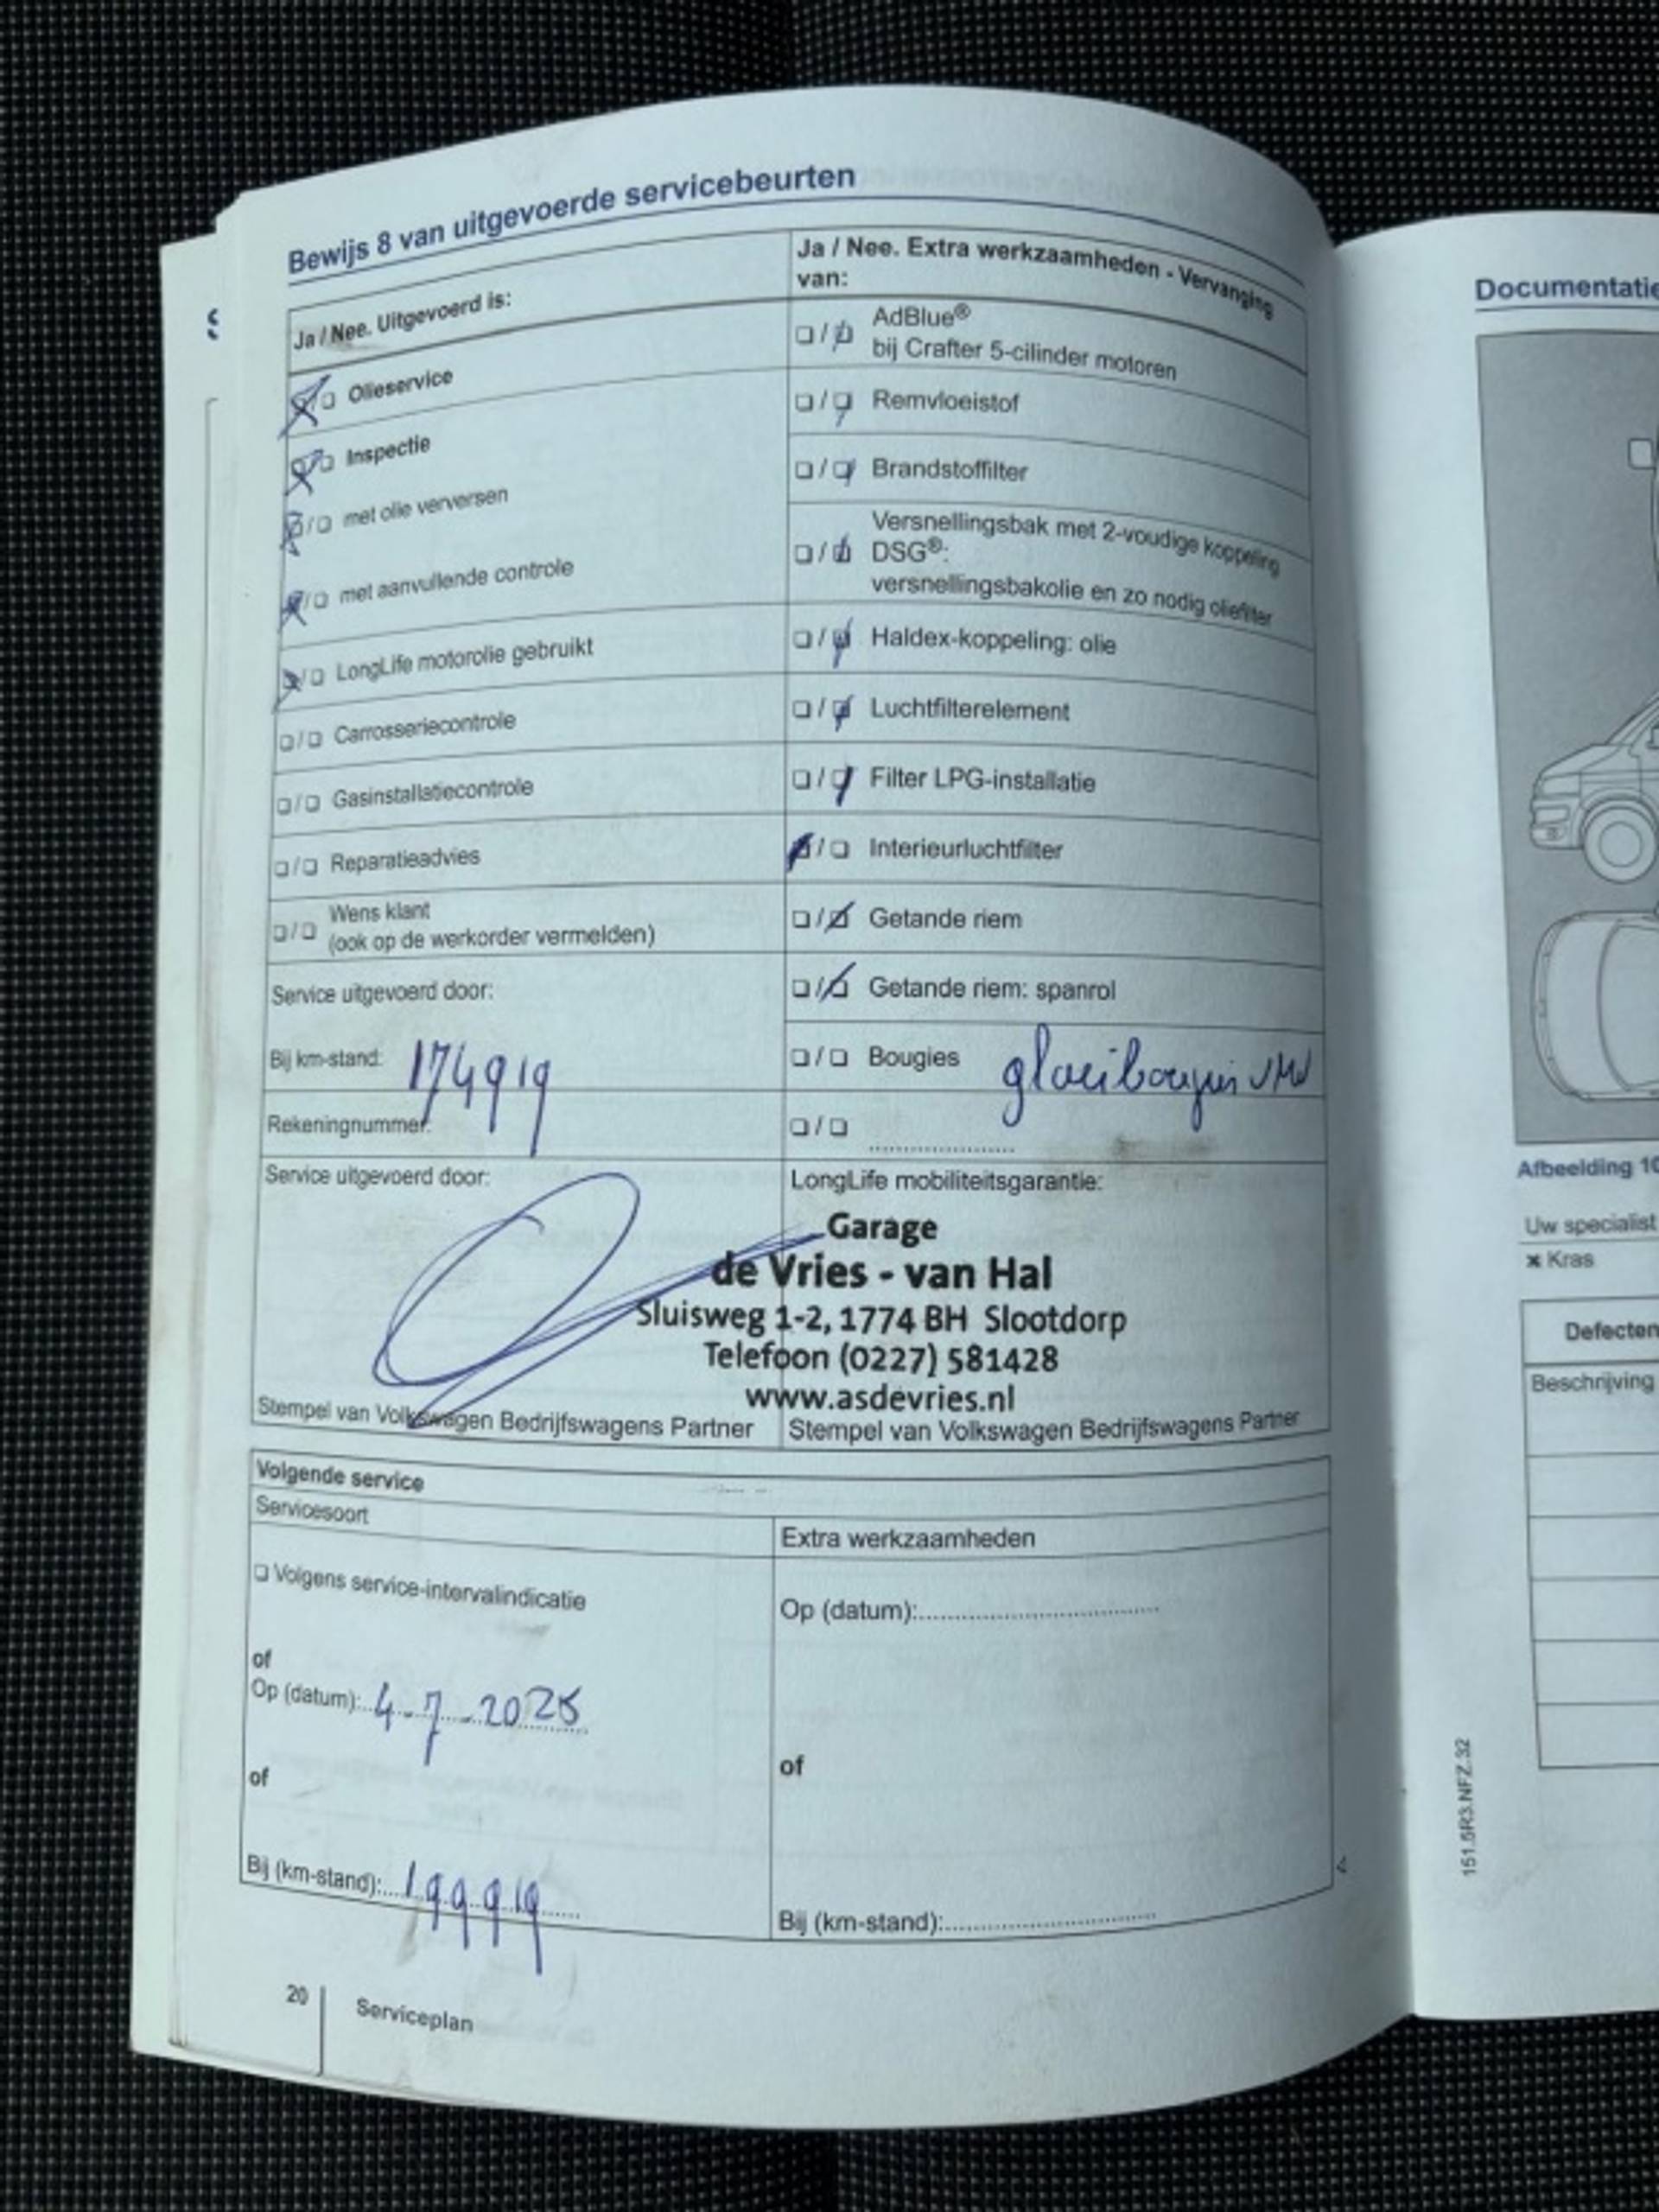 Bewijs 8 van uitgevoerde servicebeurten
Ja / Nee. Uitgevoerd is:
Olieservice
Inspectie
met olie verversen
met aanvullende controle
LongLife motorolie gebruikt
Carrosseriecontrole
Gasinstallatiecontrole
Reparatieadvies
Wens klant
(ook op de werkorder vermelden)
Service uitgevoerd door:
Bij km-stand: 174919
Rekeningnummer:
Ja / Nee. Extra werkzaamheden - Vervanging
van:
AdBlue®
bij Crafter 5-cilinder motoren
Remvloeistof
Brandstoffilter
Versnellingsbak met 2-voudige koppeling
DSG®:
versnellingsbakolie en zo nodig oliefilter
Haldex-koppeling: olie
Luchtfilterelement
Filter LPG-installatie
Interieurluchtfilter
Getande riem
Getande riem: spanrol
Bougies gloeibougies
Service uitgevoerd door:
LongLife mobiliteitsgarantie:
Garage
de Vries - van Hal
Sluisweg 1-2, 1774 BH Slootdorp
Telefoon (0227) 581428
www.asdevries.nl
Stempel van Volkswagen Bedrijfswagens Partner
Stempel van Volkswagen Bedrijfswagens Partner
Volgende service
Servicesoort
Volgens service-intervalindicatie
of
Op (datum): 4-7-2025
of
Bij (km-stand): 199919
Extra werkzaamheden
Op (datum):
of
Bij (km-stand):
20
Serviceplan
Documentatie
Afbeelding 10
Uw specialist
Kras
Defecten
Beschrijving
151.5R3.NFZ.32